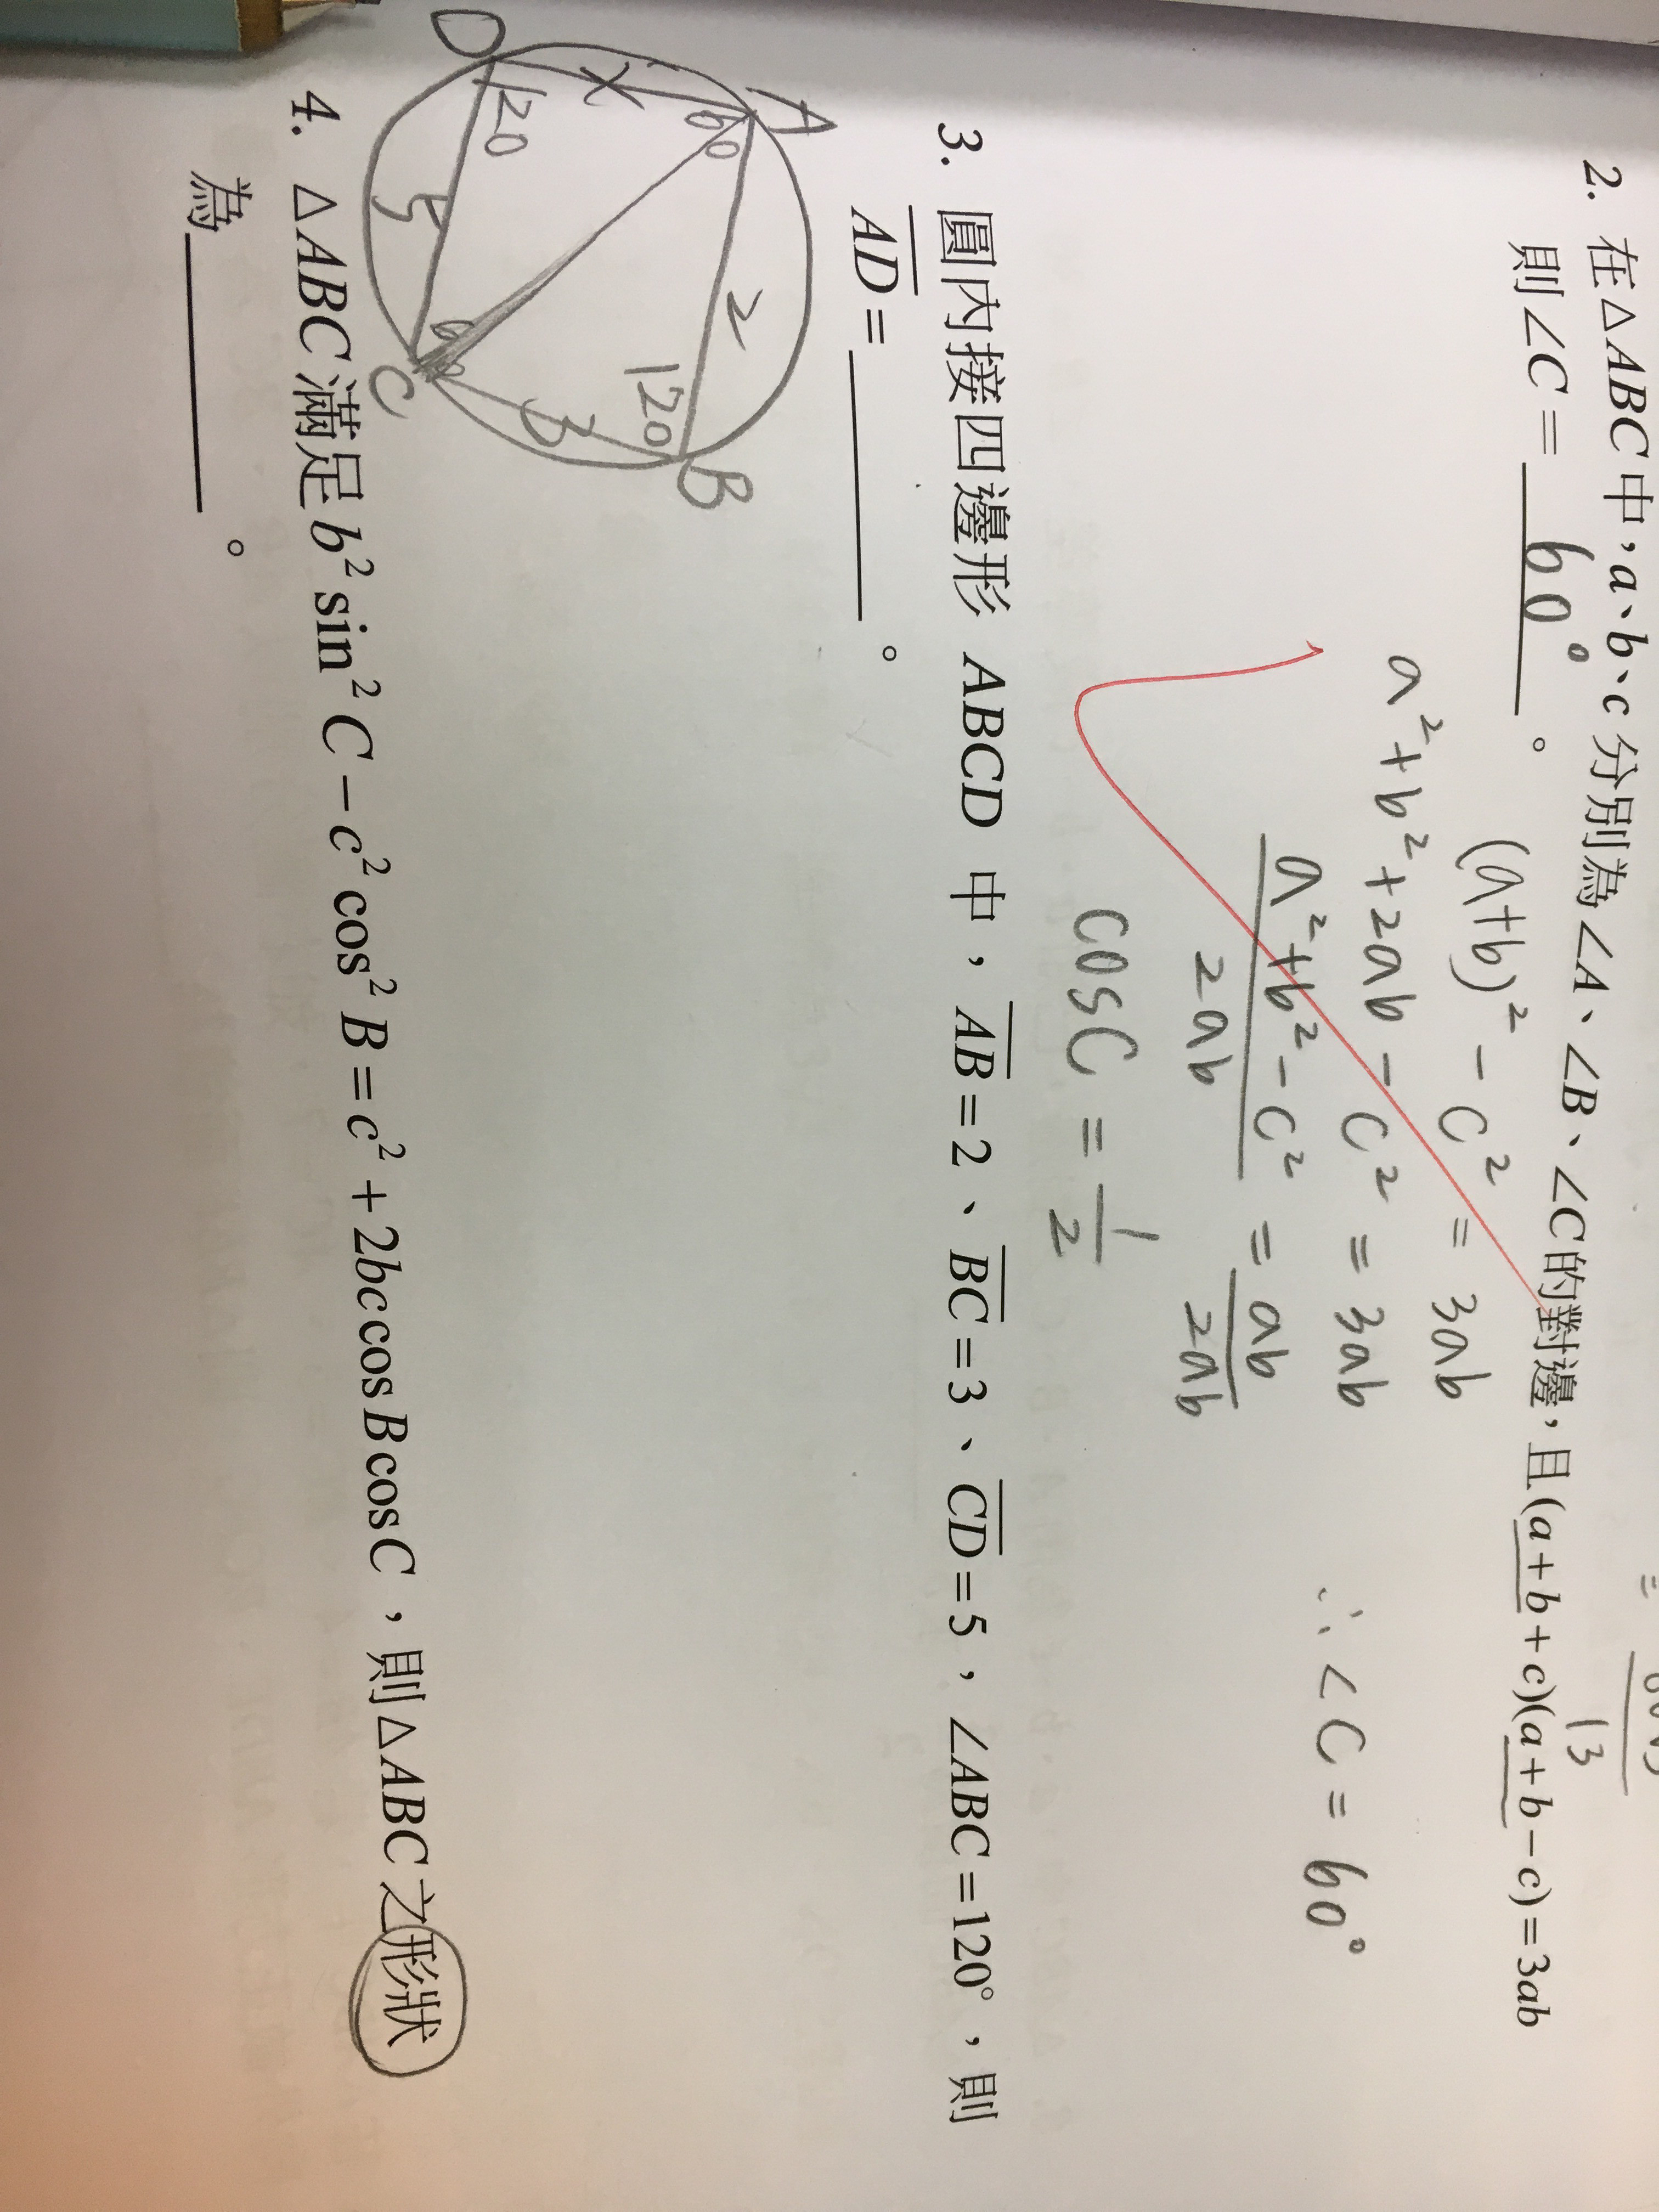 13
2. 在△ABC中,a、b、c分別為∠A、∠B、∠C的對邊,且(a+b+c)(a+b-c)=3ab
則∠C= 60° 。
(a+b)² - c² = 3ab
a²+b²+2ab - c² = 3ab
a²+b²-c² / 2ab = ab / 2ab
∴ ∠C = 60°
cosC = 1/2
3. 圓內接四邊形 ABCD 中,AB=2、BC=3、CD=5,∠ABC=120°,則
AD=______。
A
D
B
C
x
2
3
5
60
120
120
4. △ABC滿足b²sin²C-c²cos²B=c²+2bccosBcosC,則△ABC之形狀
為______。